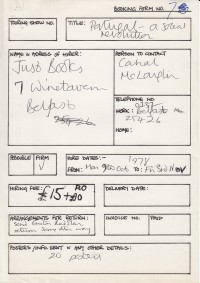 BOOKING FORM NO.
TOURING SHOW NO.
TITLE: Portugal - a
revolution
NAME & ADDRESS OF HIRER:
Just Books
7 Winetavern
Belfast
PERSON TO CONTACT
Cahal
McLaughlin
TELEPHONE NO
WORK: Belfast
25426
HOME:
POSSIBLE
FIRM
V
HIRE DATES:- 1978
FROM: Mon 9th Oct TO: Fri 3rd Nov
HIRING FEE:
£15 +
DELIVERY DATE:
ARRANGEMENTS FOR RETURN:
return same way
INVOICE NO:
PAID
POSTERS/INFO SENT & ANY OTHER DETAILS:
20 posters